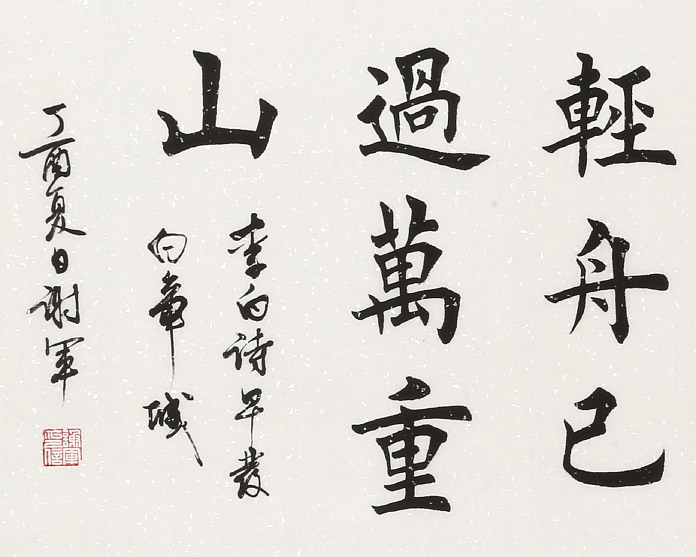 輕舟已
過萬重
山
李白詩早發
白帝城
丁酉夏日謝軍
謝軍印信